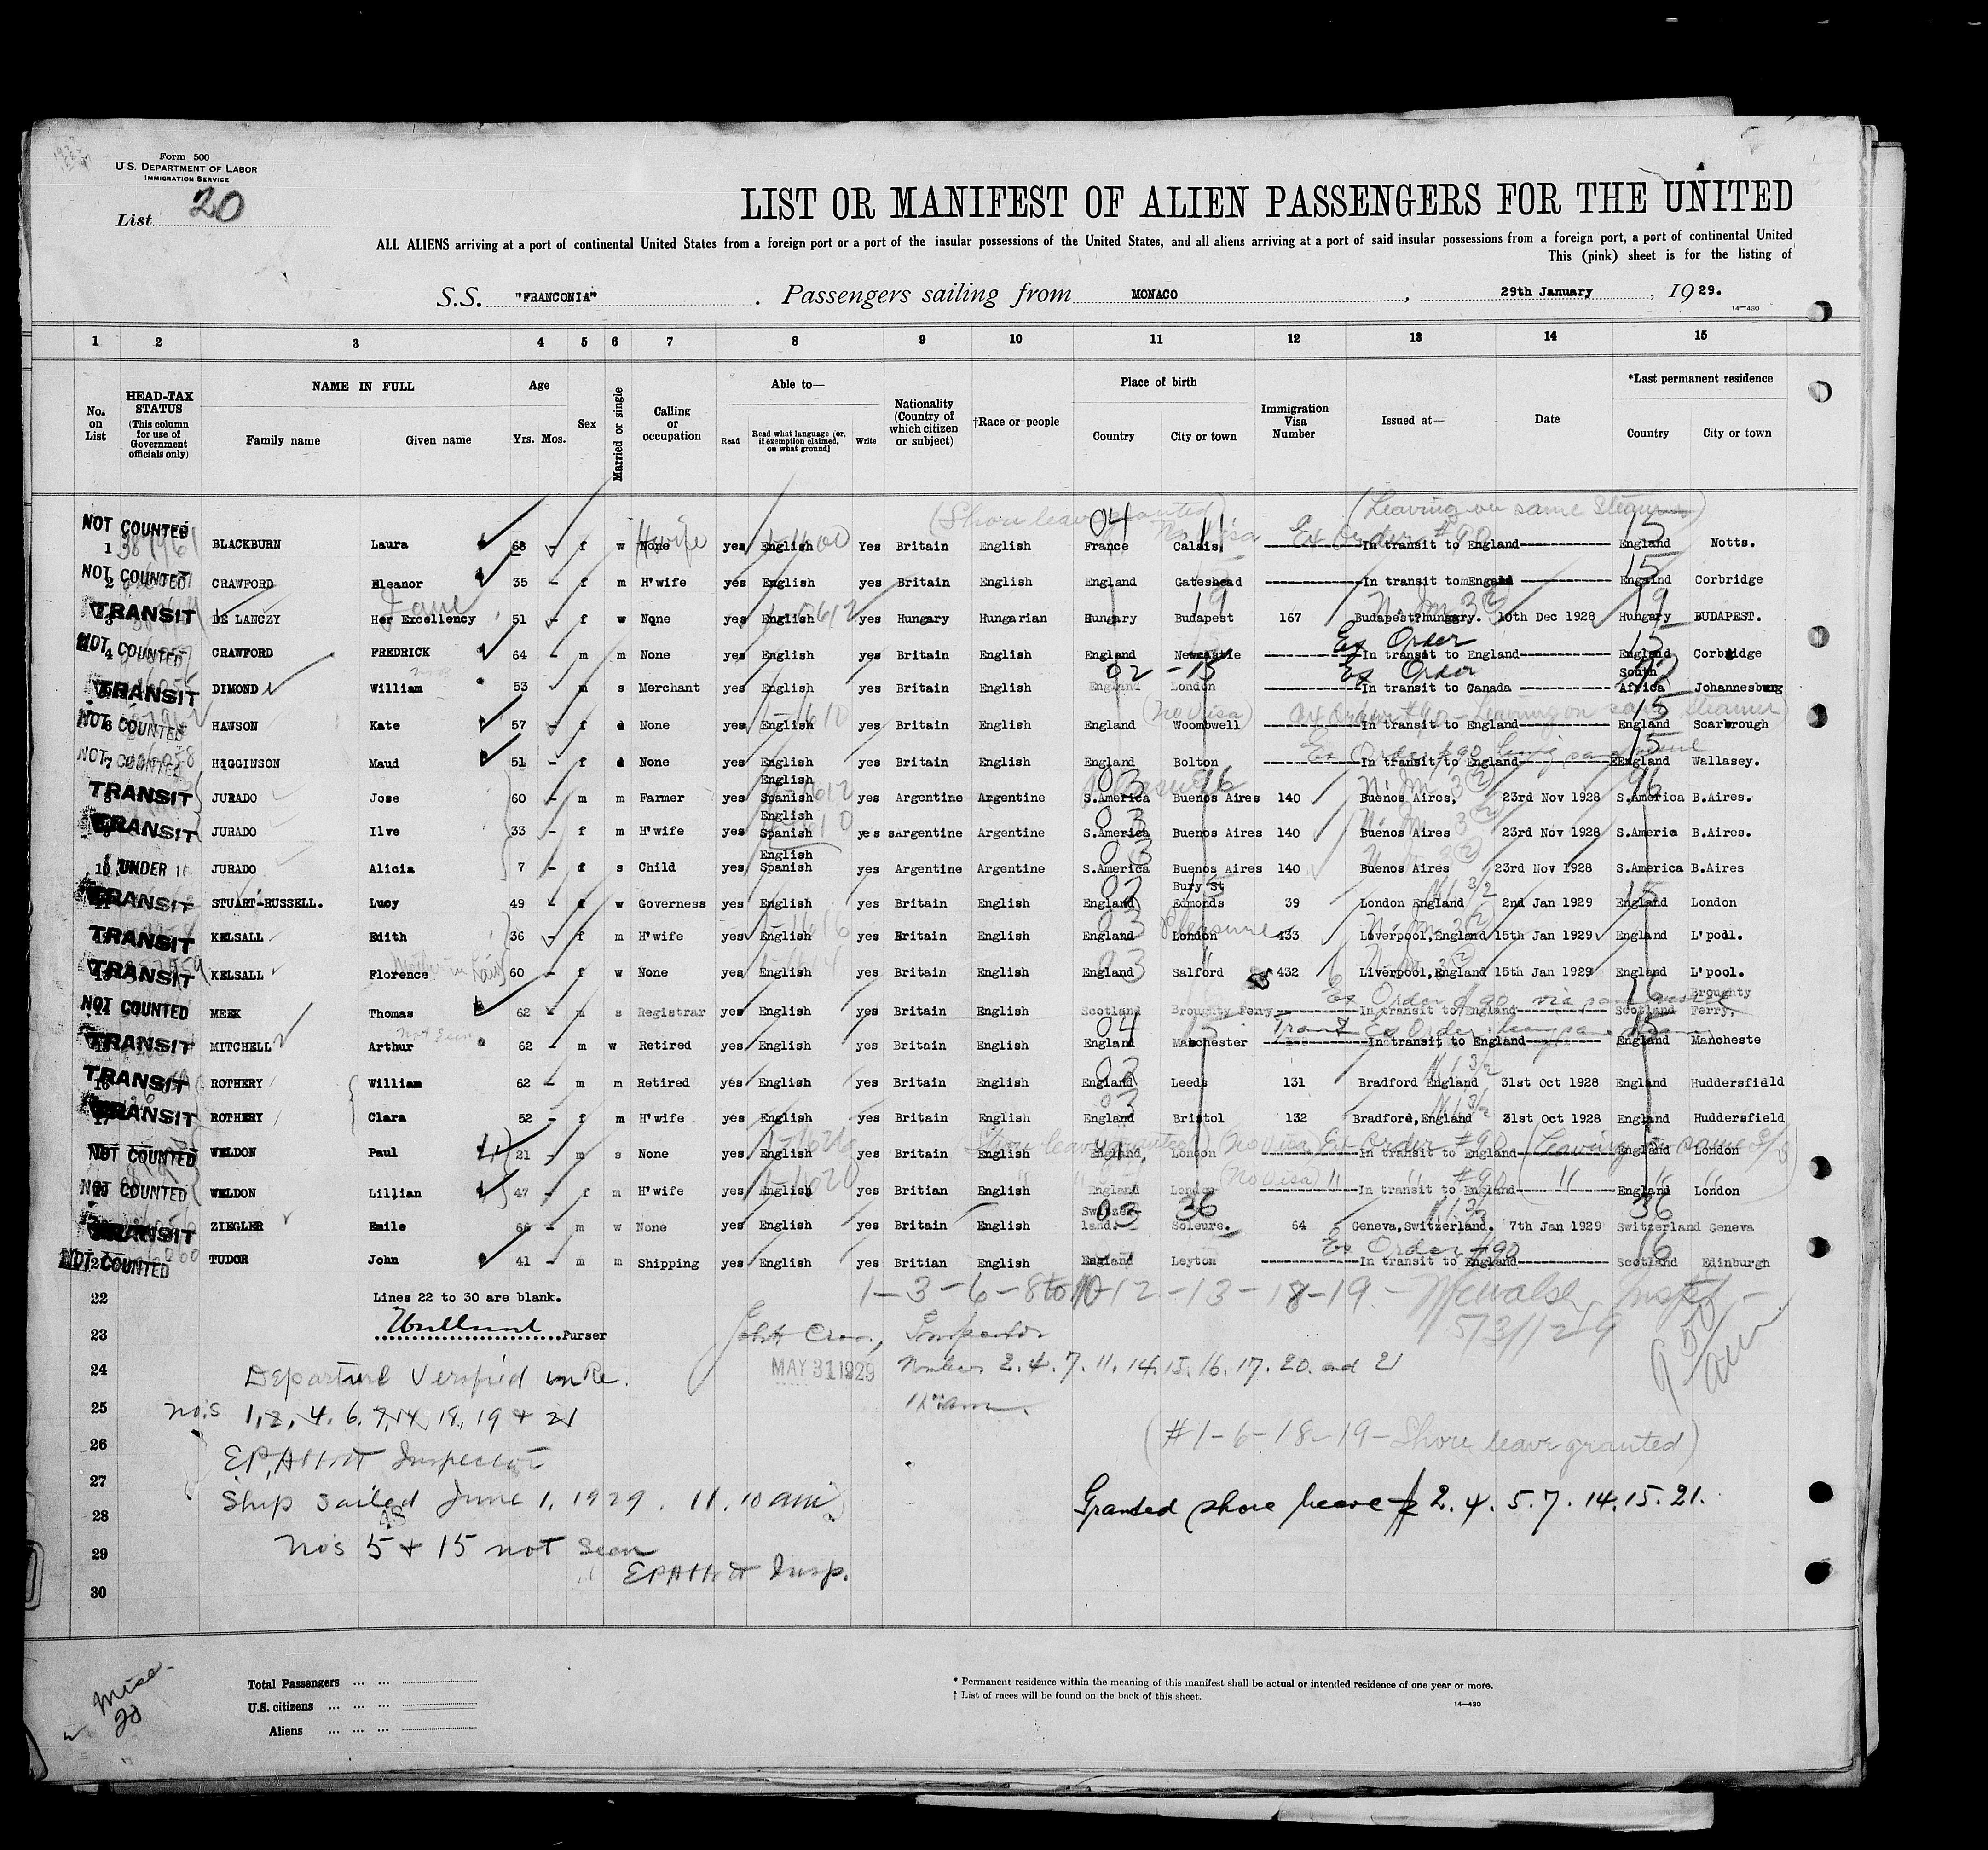 Form 500
U.S. DEPARTMENT OF LABOR
IMMIGRATION SERVICE
List 20
LIST OR MANIFEST OF ALIEN PASSENGERS FOR THE UNITED
ALL ALIENS arriving at a port of continental United States from a foreign port or a port of the insular possessions of the United States, and all aliens arriving at a port of said insular possessions from a foreign port, a port of continental United
This (pink) sheet is for the listing of
S.S. "FRANCONIA". Passengers sailing from MONACO, 29th January, 1929.
14—430
1 2 3 4 5 6 7 8 9 10 11 12 13 14 15
No. on List
HEAD-TAX STATUS (This column for use of Government officials only)
NAME IN FULL Family name Given name
Age Yrs. Mos.
Sex
Married or single
Calling or occupation
Able to— Read Read what language [or, if exemption claimed, on what ground] Write
Nationality (Country of which citizen or subject)
†Race or people
Place of birth Country City or town
Immigration Visa Number
Issued at—
Date
*Last permanent residence Country City or town
(Shore leave granted) (Leaving on same Steamer)
NOT COUNTED 1 BLACKBURN Laura 68 - f w None H'wife yes English Yes Britain English 04 France 11 Calais No Visa Ex Order #90 In transit to England 15 England Notts.
NOT COUNTED 2 CRAWFORD Eleanor 35 - f m H'wife yes English yes Britain English England Gateshead In transit to England 15 England Corbridge
TRANSIT 3 DE LANCZY Her Excellency Jane 51 - f w None yes English yes Hungary Hungarian Hungary 19 Budapest 167 Budapest?hungary. 10th Dec 1928 19 Hungary BUDAPEST.
NOT COUNTED 4 CRAWFORD FREDRICK 64 - m m None yes English yes Britain English England Newcastle Ex Order In transit to England 15 England Corbridge
TRANSIT DIMOND William 53 m s Merchant yes English yes Britain English 02 England 15 London Ex Order In transit to Canada South Africa Johannesburg
NOT COUNTED 6 HAWSON Kate 57 f d None yes English yes Britain English England Woombwell (No Visa) Ex Order #90 - Leaving on same Steamer In transit to England 15 England Scarbrough
NOT COUNTED 7 HIGGINSON Maud 51 - f d None yes English yes Britain English England Bolton Ex Order #90 In transit to England 15 England Wallasey.
TRANSIT 8 JURADO Jose 60 - m m Farmer yes English Spanish yes Argentine Argentine 03 S.America 96 Buenos Aires 140 Buenos Aires, 23rd Nov 1928 96 S.America B.Aires.
TRANSIT JURADO Ilve 33 - f m H'wife yes English Spanish yes sArgentine Argentine 03 S.America Buenos Aires 140 Buenos Aires 23rd Nov 1928 S.Americ B.Aires.
10 UNDER 16 JURADO Alicia 7 - f s Child yes English Spanish yes Argentine Argentine 03 S.America Buenos Aires 140 Buenos Aires 23rd Nov 1928 S.America B.Aires
TRANSIT STUART-RUSSELL. Lucy 49 - f w Governess yes English yes Britain English 02 England Bury St Edmonds 39 London England 2nd Jan 1929 15 England London
TRANSIT KELSALL Edith 36 - f m H'wife yes English yes Britain English 03 England London Pleasure 433 Liverpool,England 15th Jan 1929 England L'pool.
TRANSIT KELSALL Florence Mother in law 60 - f w None yes English yes Britain English 03 England Salford 432 Liverpool,England 15th Jan 1929 England L'pool.
NOT COUNTED 14 MEEK Thomas 62 - m s Registrar yes English yes Britain English Scotland Broughty Ferry Ex Order #90 In transit to England 16 Scotland Broughty Ferry,
TRANSIT MITCHELL Arthur Not Seen 62 - m w Retired yes English yes Britain English 04 England Manchester Ex Order In transit to England 15 England Mancheste
TRANSIT 16 ROTHERY William 62 - m m Retired yes English yes Britain English 02 England Leeds 131 Bradford England 31st Oct 1928 England Huddersfield
TRANSIT 17 ROTHERY Clara 52 - f m H'wife yes English yes Britain English 03 England Bristol 132 Bradford,England 31st Oct 1928 England Huddersfield
NOT COUNTED WELDON Paul 21 - m s None yes English yes Britain English Shore leave granted England, London (No Visa) Ex Order #90 In transit to England (Leaving on same S/S) England London
NOT COUNTED WELDON Lillian 47 - f m H'wife yes English yes Britian English England London (No Visa) " " #90 In transit to England " England London
TRANSIT ZIEGLER Emile 66 - m w None yes English yes Britain English 03 Switzerland. 36 Soleure. 64 Geneva,Switzerland. 7th Jan 1929 36 Switzerland Geneva
NOT COUNTED 21 TUDOR John 41 - m m Shipping yes English yes Britian English England Leyton Ex Order #90 In transit to England 16 Scotland Edinburgh
22 Lines 22 to 30 are blank. 1-3-6-8 to 10-12-13-18-19-
23 Purser Inspector 5/31/29
24 Departure Verified in Re. MAY 31 1929 Numbers 2. 4. 7. 11. 14. 15. 16. 17. 20. and 21
25 No.s 1, 2, 4. 6. 7, 14 18, 19 & 21
26 Inspector (#1-6-18-19-Shore leave granted)
27 Ship sailed June 1, 1929. 11.10 am
28 Granted shore leave 2. 4. 5. 7. 14. 15. 21.
29 No's 5 & 15 not seen
30 Insp.
Misc. 20
Total Passengers
U.S. citizens
Aliens
* Permanent residence within the meaning of this manifest shall be actual or intended residence of one year or more.
† List of races will be found on the back of this sheet.
14—430